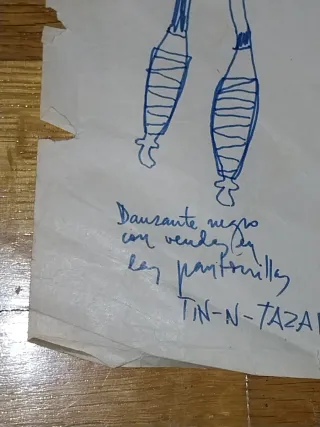 Danzante negro
con vendas en
las pantorrillas
TIN-N-TAZA